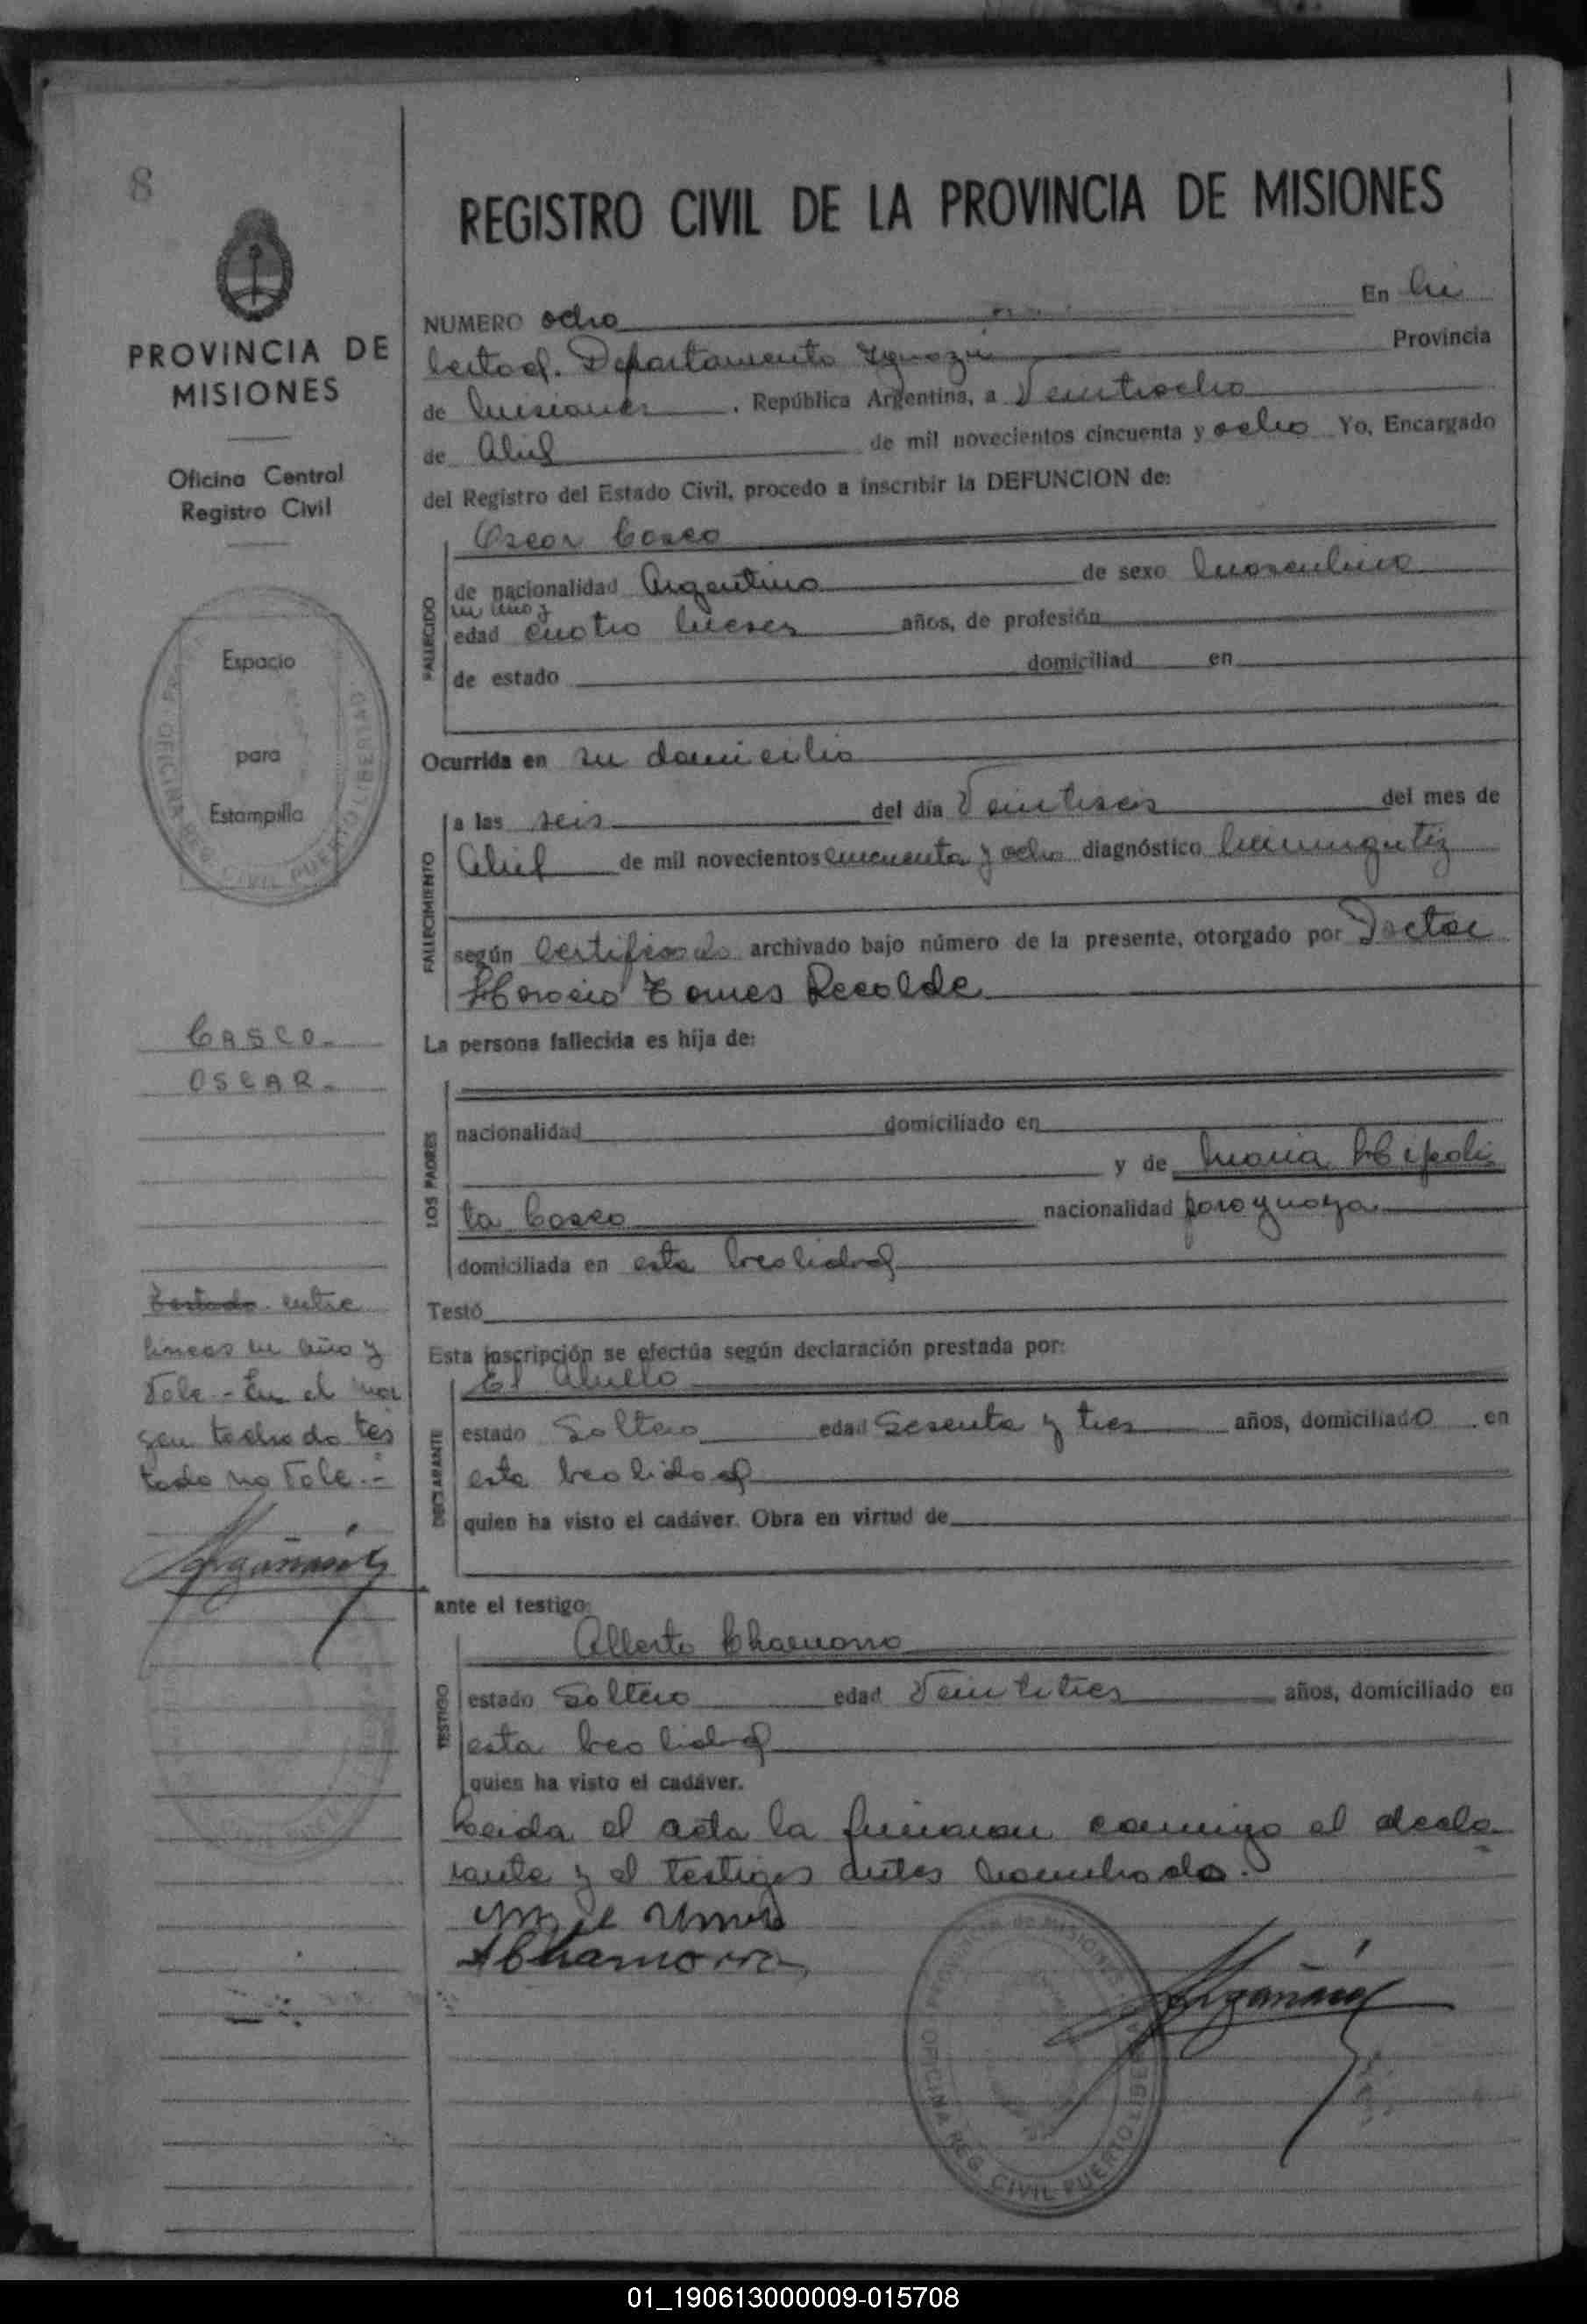 8
PROVINCIA DE
MISIONES
Oficina Central
Registro Civil
Espacio
para
Estampilla
OFICINA REG. CIVIL PUERTO LIBERTAD
CASCO.-
OSCAR.-
Testado entre
lineas un año y
Vale - En el mar
gen tachado tes
tado no Vale.-
REGISTRO CIVIL DE LA PROVINCIA DE MISIONES
NUMERO ocho En Li
bertad. Departamento Iguazú Provincia
de Misiones, República Argentina, a Veintiocho
de Abril de mil novecientos cincuenta y ocho Yo, Encargado
del Registro del Estado Civil, procedo a inscribir la DEFUNCION de:
Oscar Casco
FALLECIDO
de nacionalidad Argentino de sexo Masculino
un año y
edad cuatro meses años, de profesión
de estado domiciliad en
Ocurrida en su domicilio
FALLECIMIENTO
a las seis del día Veintiseis del mes de
Abril de mil novecientos cincuenta y ocho diagnóstico
según Certificado archivado bajo número de la presente, otorgado por Doctor
Horacio Recolde
La persona fallecida es hija de:
LOS PADRES
nacionalidad domiciliado en
y de Maria Hipoli
ta Casco nacionalidad paraguaya
domiciliada en esta localidad
Testó
Esta inscripción se efectúa según declaración prestada por:
El Abuelo
DECLARANTE
estado Soltero edad Sesenta y tres años, domiciliado en
esta localidad
quien ha visto el cadáver. Obra en virtud de
ante el testigo:
Alberto Chamorro
TESTIGO
estado Soltero edad Veintitres años, domiciliado en
esta localidad
quien ha visto el cadáver.
Leida el acta la firmaron conmigo el decla
rante y el testigos antes nombrado.
AChamorro
PROVINCIA de MISIONES
OFICINA REG. CIVIL PUERTO LIBERTAD
01_190613000009-015708